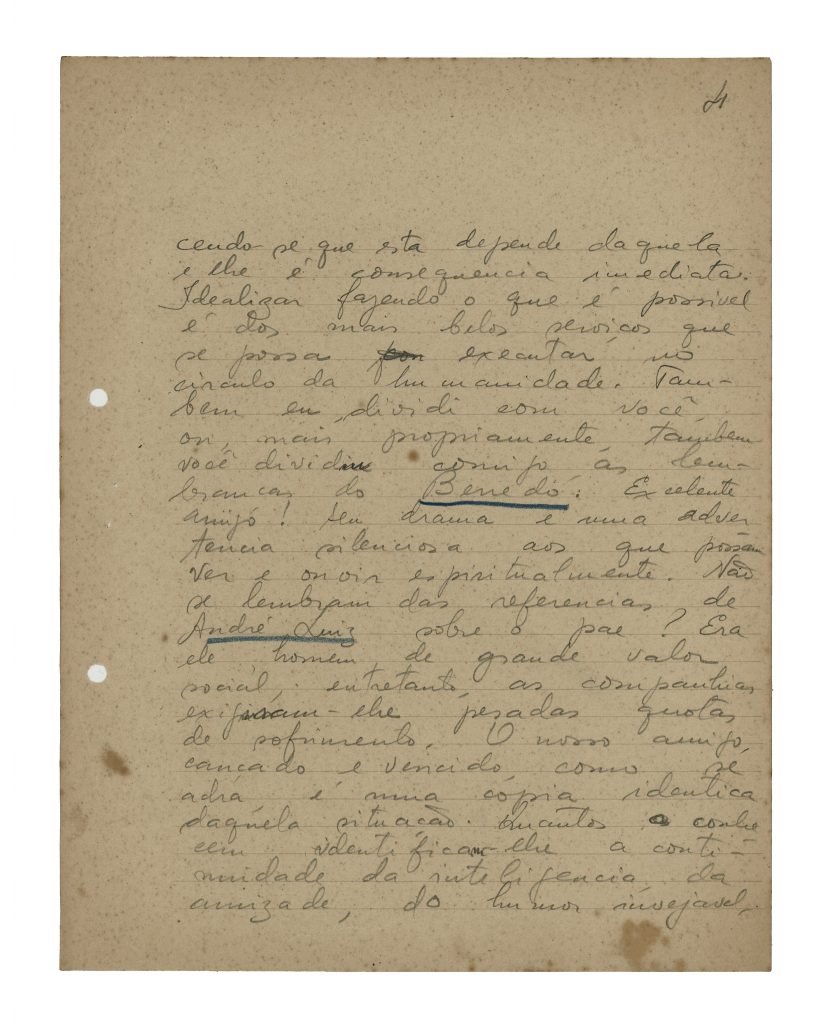 4
cendo-se que esta depende daquela
e lhe é consequencia imediata.
Idealizar fazendo o que é possivel
é dos mais belos serviços que
se possa executar no
circulo da humanidade. Tam-
bem eu dividi com você
ou, mais propriamente, tambem
você dividiu comigo as lem-
branças do Benedó. Excelente
amigo! Seu drama é uma adver
tencia silenciosa aos que possam
ver e ouvir espiritualmente. Não
se lembram das referencias de
André Luiz sobre o pae? Era
ele homem de grande valor
social, entretanto, as companhias
exigiram-lhe pesadas quotas
de sofrimento. O nosso amigo,
cançado e vencido como se
acha é uma cópia identica
daquela situação. Quantos o conhe
cem identificam-lhe a conti-
nuidade da inteligencia, da
amizade, do humor invejavel,